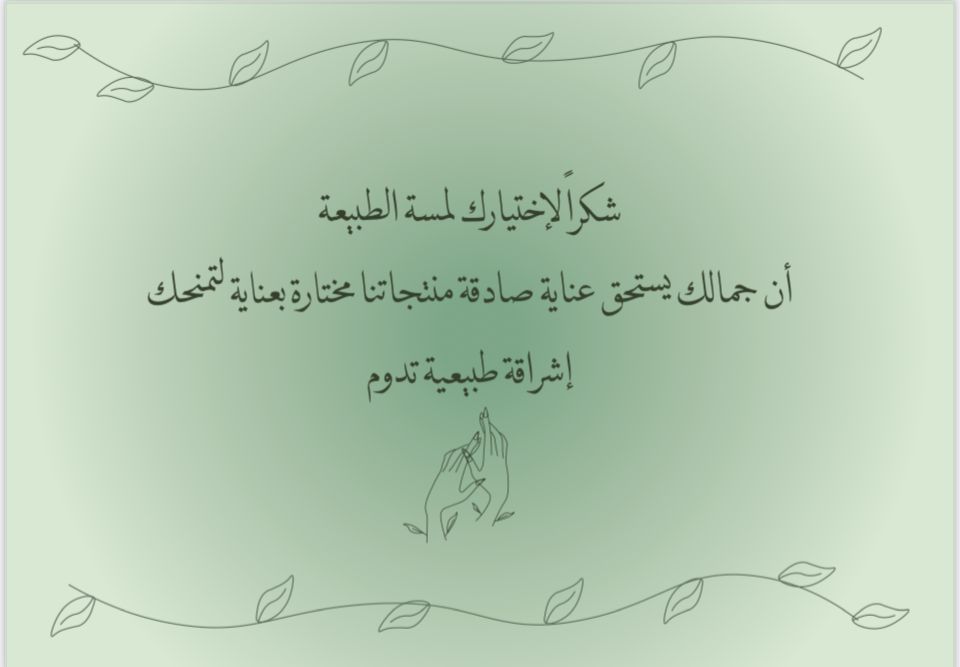 شكراً لإختيارك لمسة الطبيعة
أن جمالك يستحق عناية صادقة منتجاتنا مختارة بعناية لتمنحك
إشراقة طبيعية تدوم